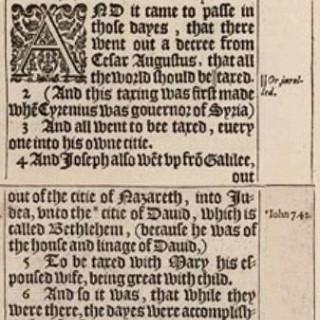 AND it came to passe in
those dayes, that there
went out a decree from
Cesar Augustus, that all
the world should be taxed.
2 (And this taxing was first made
whē Cyrenius was gouernor of Syria)
3 And all went to bee taxed, euery
one into his owne citie.
4 And Joseph also wēt vp frō Galilee,
out
out of the citie of Nazareth, into Ju-
dea, vnto the * citie of Dauid, which is
called Bethlehem, (because he was of
the house and linage of Dauid,)
5 To be taxed with Mary his es-
poused wife, being great with child.
6 And so it was, that while they
were there, the dayes were accomplish-
|| Or inrol-
led.
* Iohn 7.42.